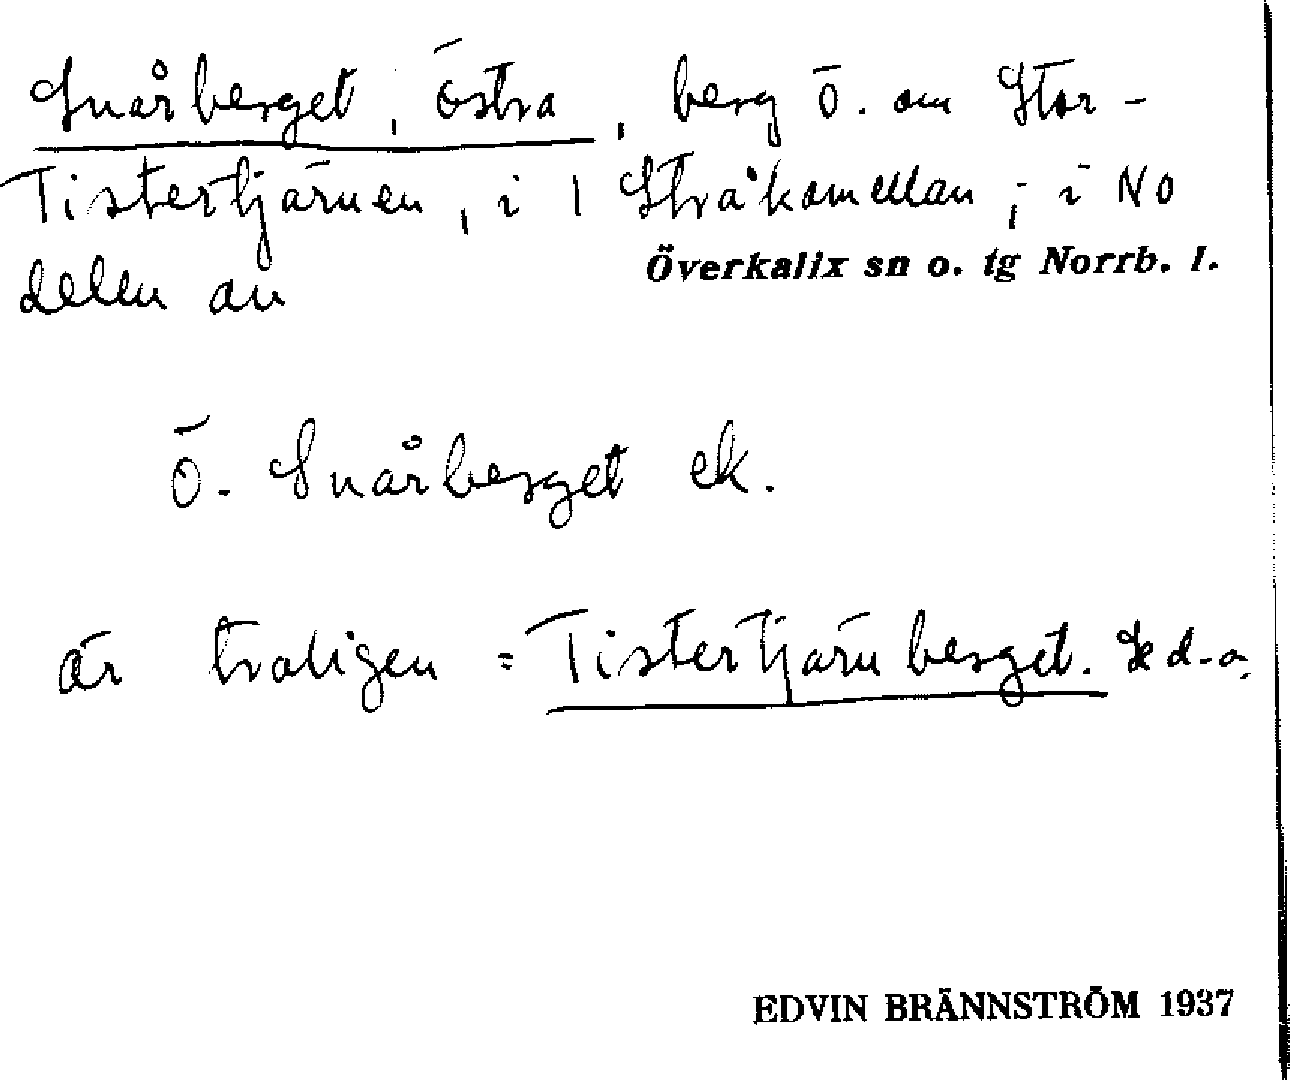 Snårberget, östra, berg ö. om Stor-
Tistertjärnen, i 1 Stråkamellan, i NO
delen av
Överkalix sn o. tg Norrb. l.
Ö. Snårberget ek.
är troligen = Tistertjärnberget. Se d. o.
EDVIN BRÄNNSTRÖM 1937